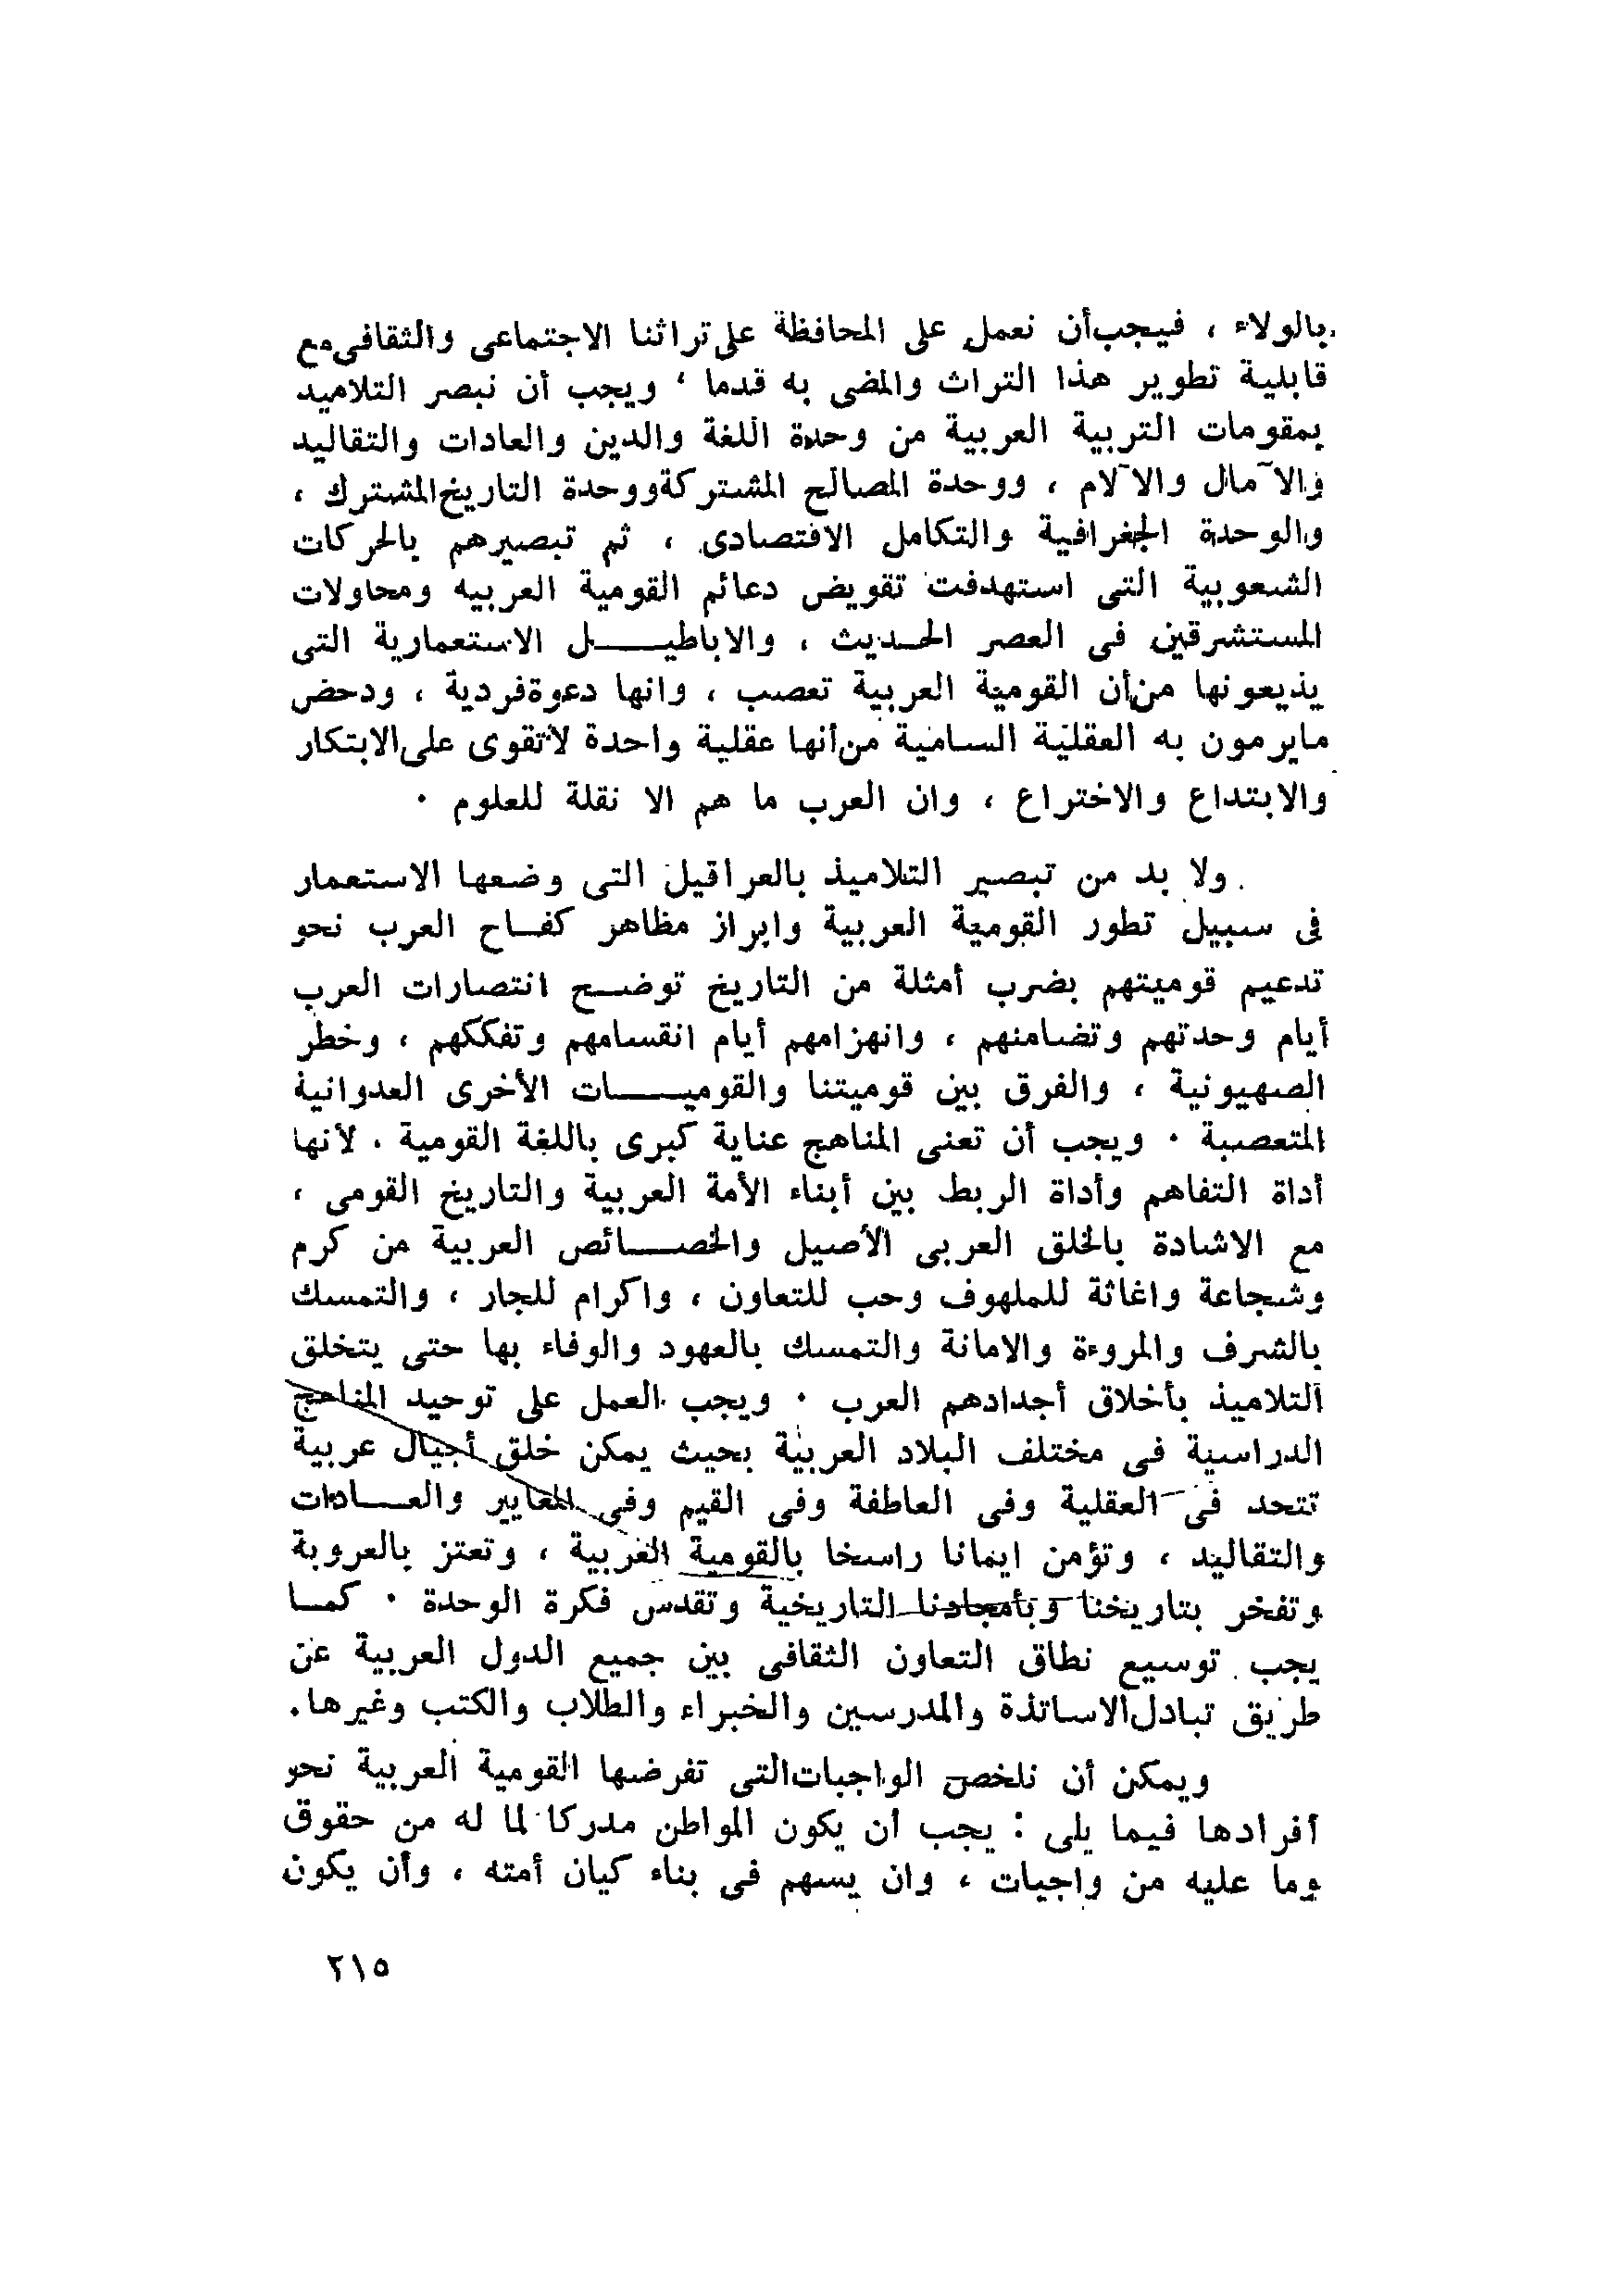 بالولاء ، فيجب أن نعمل على المحافظة على تراثنا الاجتماعى والثقافى مع
قابلية تطوير هذا التراث والمضى به قدما ، ويجب أن نبصر التلاميد
بمقومات التربية العربية من وحدة اللغة والدين والعادات والتقاليد
والآمال والآلام ، ووحدة المصالح المشتركة ووحدة التاريخ المشترك ،
والوحدة الجغرافية والتكامل الاقتصادى ، ثم تبصيرهم بالحركات
الشعوبية التى استهدفت تقويض دعائم القومية العربيه ومحاولات
المستشرقين فى العصر الحديث ، والاباطيل الاستعمارية التى
يذيعونها من أن القومية العربية تعصب ، وانها دعوة فردية ، ودحض
مايرمون به العقلية السامية من أنها عقلية واحدة لاتقوى على الابتكار
والابتداع والاختراع ، وان العرب ما هم الا نقلة للعلوم .
ولا بد من تبصير التلاميذ بالعراقيل التى وضعها الاستعمار
فى سبيل تطور القومية العربية وابراز مظاهر كفاح العرب نحو
تدعيم قوميتهم بضرب أمثلة من التاريخ توضح انتصارات العرب
أيام وحدتهم وتضامنهم ، وانهزامهم أيام انقسامهم وتفككهم ، وخطر
الصهيونية ، والفرق بين قوميتنا والقوميات الأخرى العدوانية
المتعصبة . ويجب أن تعنى المناهج عناية كبرى باللغة القومية . لأنها
أداة التفاهم وأداة الربط بين أبناء الأمة العربية والتاريخ القومى ،
مع الاشادة بالخلق العربى الأصيل والخصائص العربية من كرم
وشجاعة واغاثة للملهوف وحب للتعاون ، واكرام للجار ، والتمسك
بالشرف والمروءة والامانة والتمسك بالعهود والوفاء بها حتى يتخلق
التلاميذ بأخلاق أجدادهم العرب . ويجب العمل على توحيد المناهج
الدراسية فى مختلف البلاد العربية بحيث يمكن خلق أجيال عربية
تتحد فى العقلية وفى العاطفة وفى القيم وفى المعايير والعادات
والتقاليد ، وتؤمن ايمانا راسخا بالقومية العربية ، وتعتز بالعروبة
وتفخر بتاريخنا وبأمجادنا التاريخية وتقدس فكرة الوحدة . كما
يجب توسيع نطاق التعاون الثقافى بين جميع الدول العربية عن
طريق تبادل الاساتذة والمدرسين والخبراء والطلاب والكتب وغيرها.
ويمكن أن نلخص الواجبات التى تفرضها القومية العربية نحو
أفرادها فيما يلى : يجب أن يكون المواطن مدركا لما له من حقوق
وما عليه من واجبات ، وان يسهم فى بناء كيان أمته ، وأن يكون
٢١٥